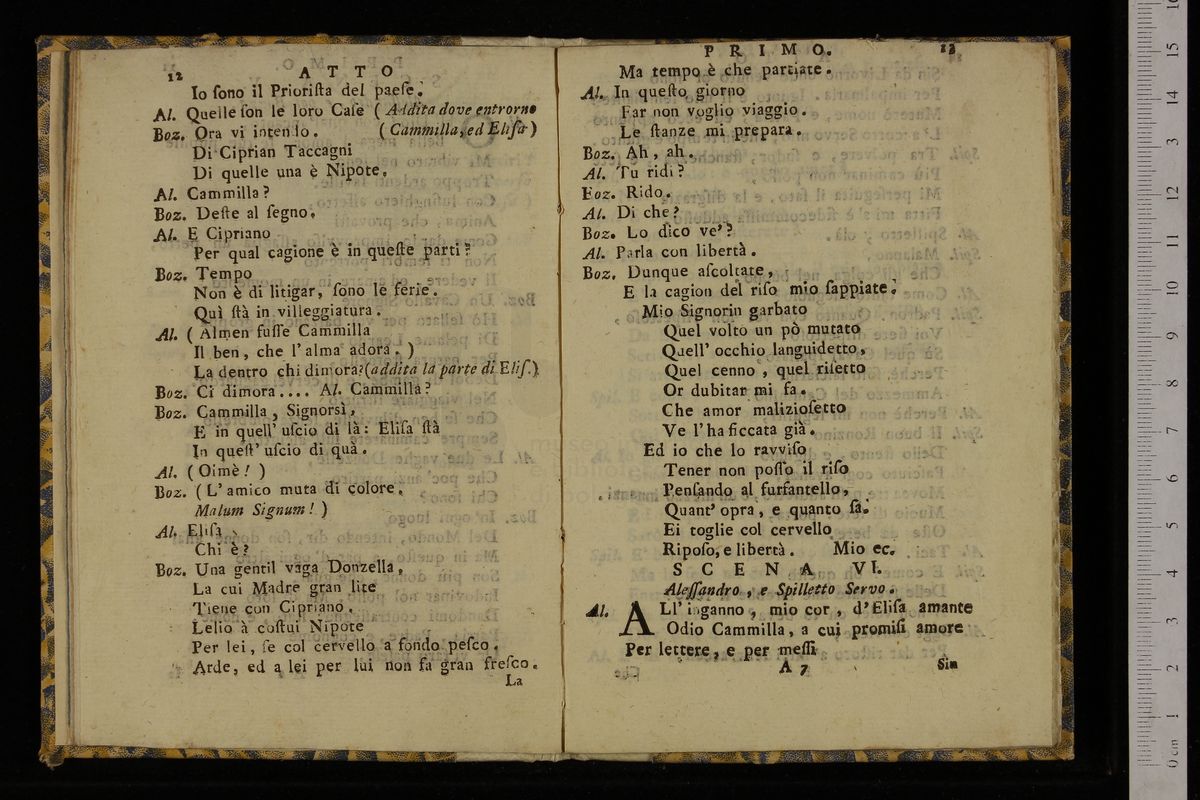 12 ATTO
Io ſono il Prioriſta del paeſe.
Al. Quelle ſon le loro Caſe ( Addita dove entrorno
Boz. Ora vi intendo. ( Cammilla, ed Eliſa )
Di Ciprian Taccagni
Di quelle una è Nipote.
Al. Cammilla?
Boz. Deſte al ſegno.
Al. E Cipriano
Per qual cagione è in queſte parti?
Boz. Tempo
Non è di litigar, ſono le ferie.
Quì ſtà in villeggiatura.
Al. ( Almen fuſſe Cammilla
Il ben, che l'alma adora. )
La dentro chi dimora? (addita la parte di Eliſ.)
Boz. Ci dimora.... Al. Cammilla?
Boz. Cammilla, Signorsì,
E in quell' uſcio di là: Eliſa ſtà
In queſt' uſcio di quà.
Al. ( Oimè! )
Boz. ( L'amico muta di colore.
Malum Signum! )
Al. Eliſa
Chi è?
Boz. Una gentil vaga Donzella,
La cui Madre gran lite
Tiene con Cipriano.
Lelio à coſtui Nipote
Per lei, ſe col cervello a fondo peſco.
Arde, ed a lei per lui non fa gran freſco.
La
PRIMO. 13
Ma tempo è che partiate.
Al. In queſto giorno
Far non voglio viaggio.
Le ſtanze mi prepara.
Boz. Ah, ah.
Al. Tu ridi?
Boz. Rido.
Al. Di che?
Boz. Lo dico ve'?
Al. Parla con libertà.
Boz. Dunque aſcoltate,
E la cagion del riſo mio ſappiate.
Mio Signorin garbato
Quel volto un pò mutato
Quell' occhio languidetto,
Quel cenno, quel riſetto
Or dubitar mi fa.
Che amor malizioſetto
Ve l'ha ficcata già.
Ed io che lo ravviſo
Tener non poſſo il riſo
Penſando al furfantello,
Quant' opra, e quanto fa.
Ei toglie col cervello
Ripoſo, e libertà. Mio ec.
SCENA VI.
Aleſſandro, e Spilletto Servo.
Al. ALl' inganno, mio cor, d'Eliſa amante
Odio Cammilla, a cui promiſi amore
Per lettere, e per meſſi
A 7 Sin